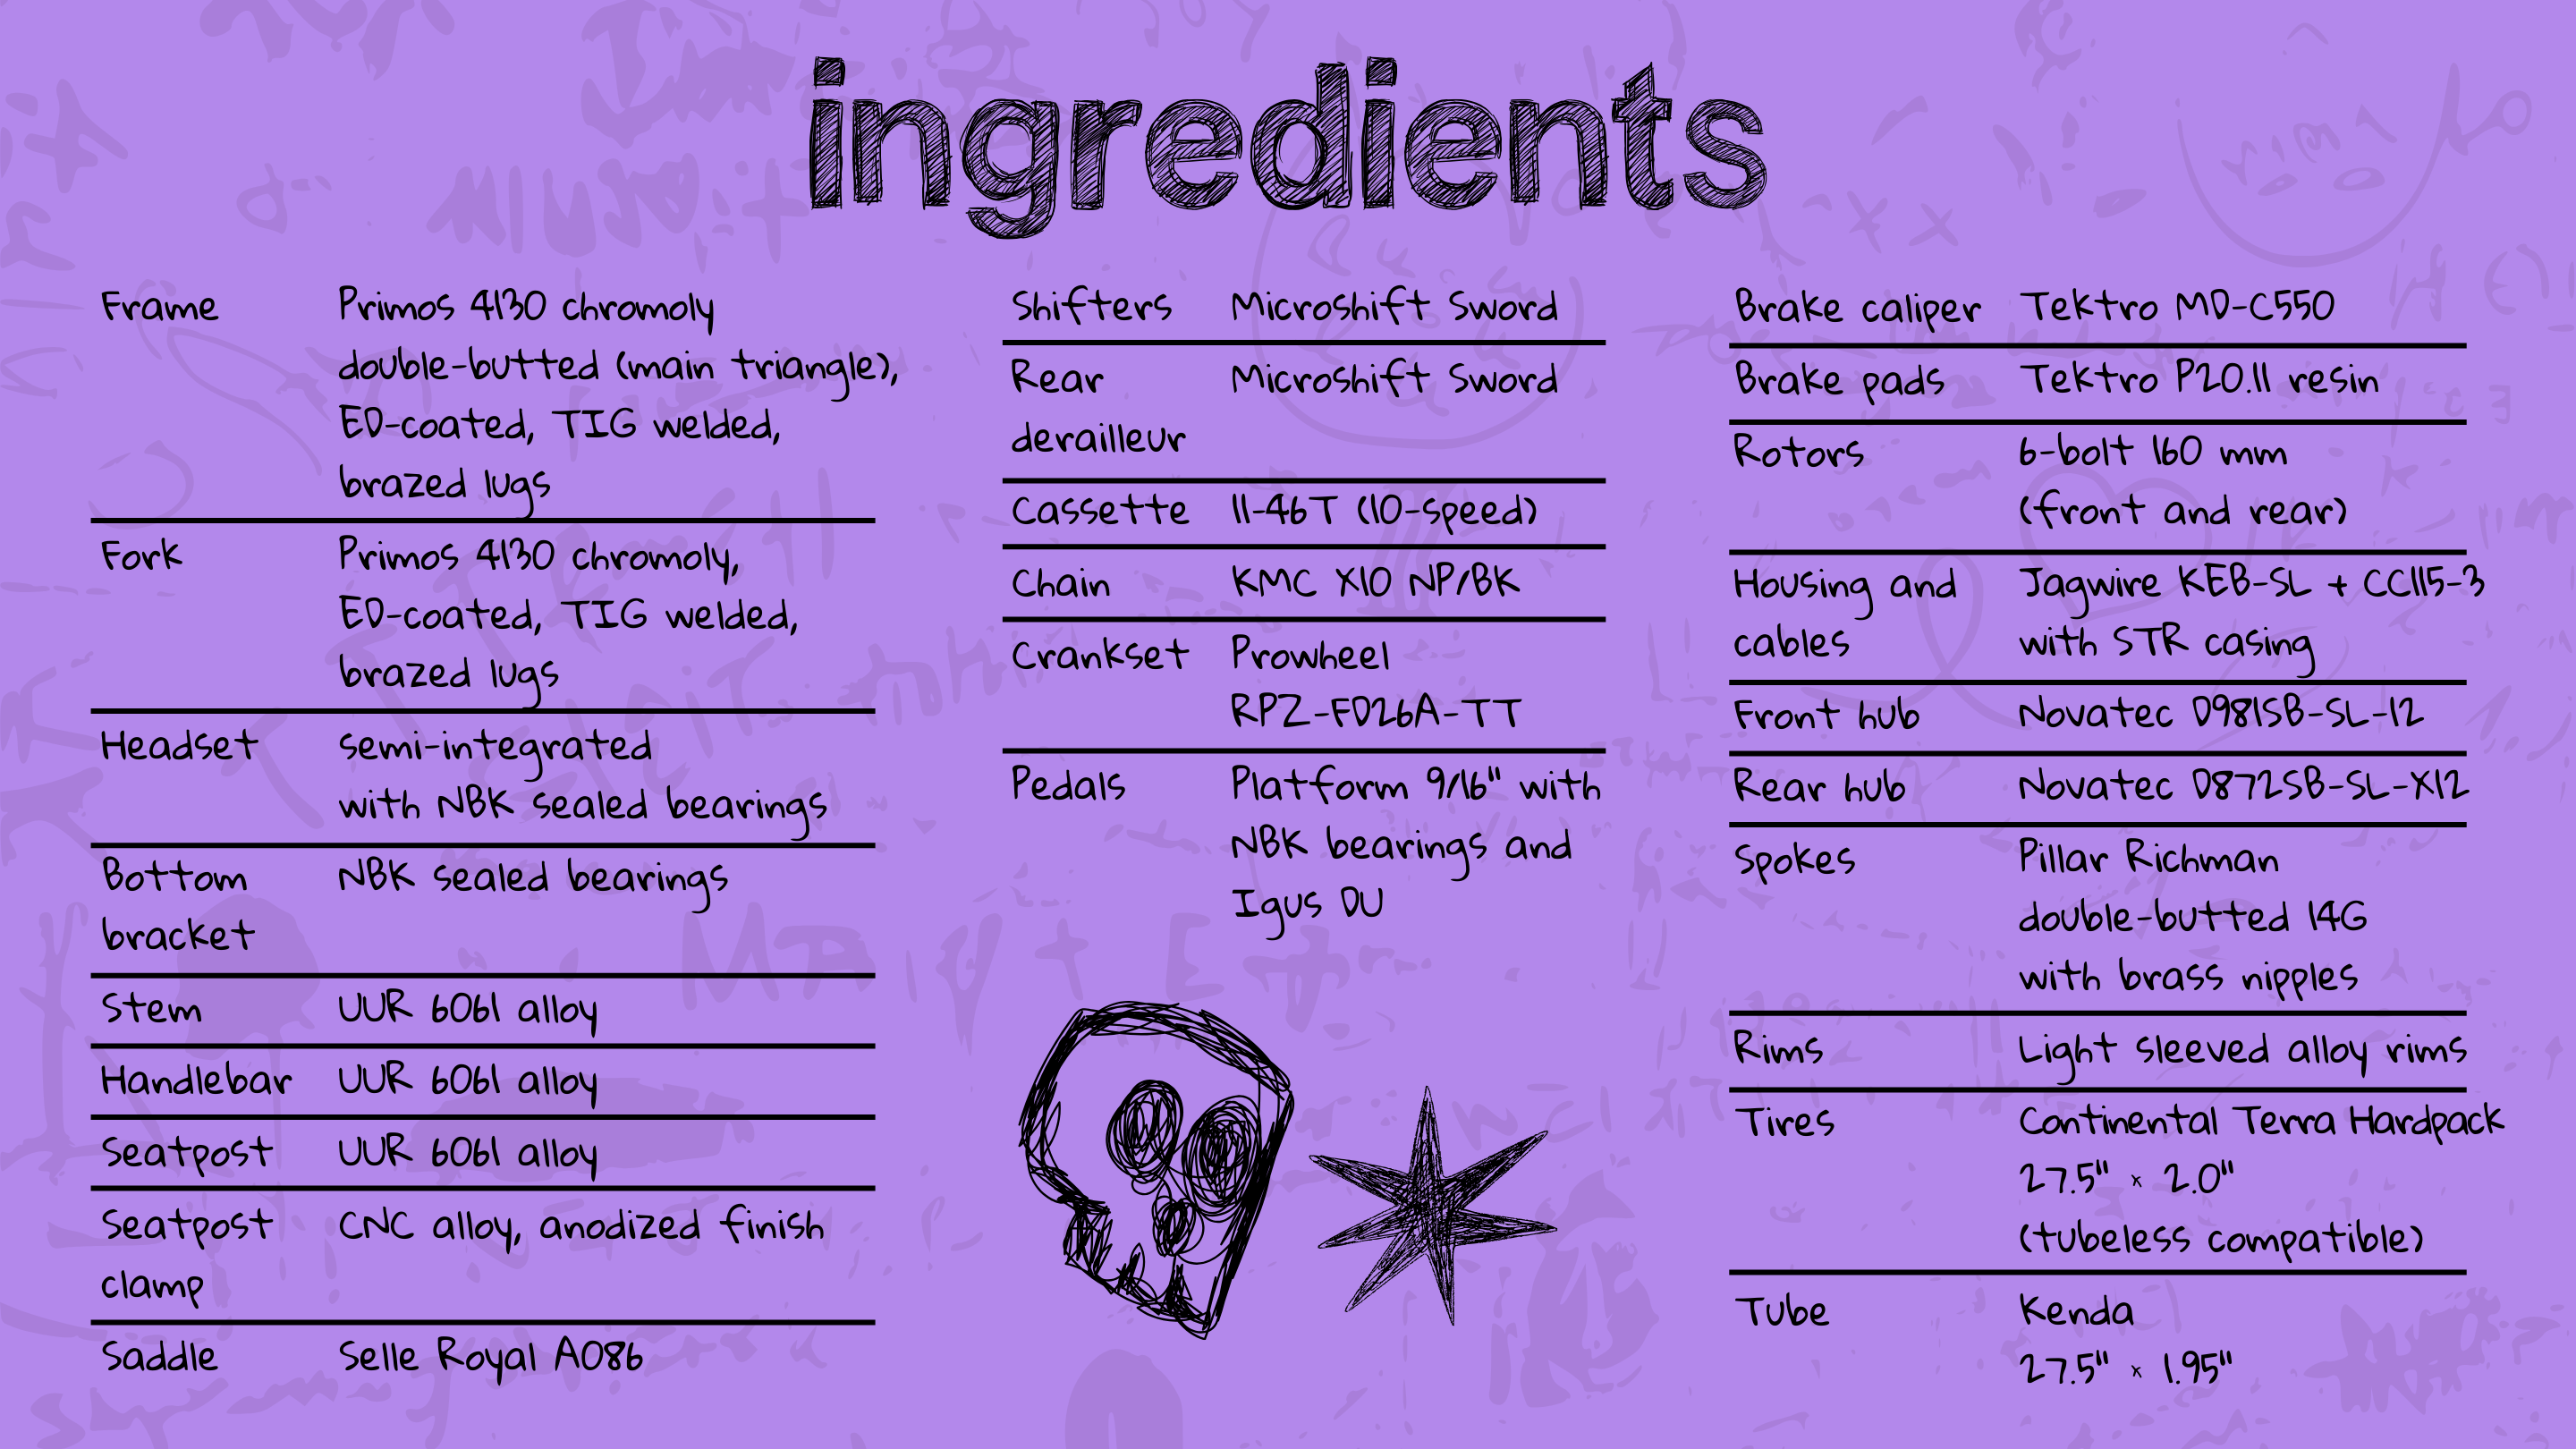 ingredients
Frame Primos 4130 chromoly
double-butted (main triangle),
ED-coated, TIG welded,
brazed lugs
Fork Primos 4130 chromoly,
ED-coated, TIG welded,
brazed lugs
Headset semi-integrated
with NBK sealed bearings
Bottom NBK sealed bearings
bracket
Stem UUR 6061 alloy
Handlebar UUR 6061 alloy
Seatpost UUR 6061 alloy
Seatpost CNC alloy, anodized finish
clamp
Saddle Selle Royal A086
Shifters Microshift Sword
Rear Microshift Sword
derailleur
Cassette 11-46T (10-speed)
Chain KMC X10 NP/BK
Crankset Prowheel
RPZ-FD26A-TT
Pedals Platform 9/16" with
NBK bearings and
Igus DU
Brake caliper Tektro MD-C550
Brake pads Tektro P20.11 resin
Rotors 6-bolt 160 mm
(front and rear)
Housing and Jagwire KEB-SL + CC115-3
cables with STR casing
Front hub Novatec D981SB-SL-12
Rear hub Novatec D872SB-SL-X12
Spokes Pillar Richman
double-butted 14G
with brass nipples
Rims Light sleeved alloy rims
Tires Continental Terra Hardpack
27.5" x 2.0"
(tubeless compatible)
Tube Kenda
27.5" x 1.95"